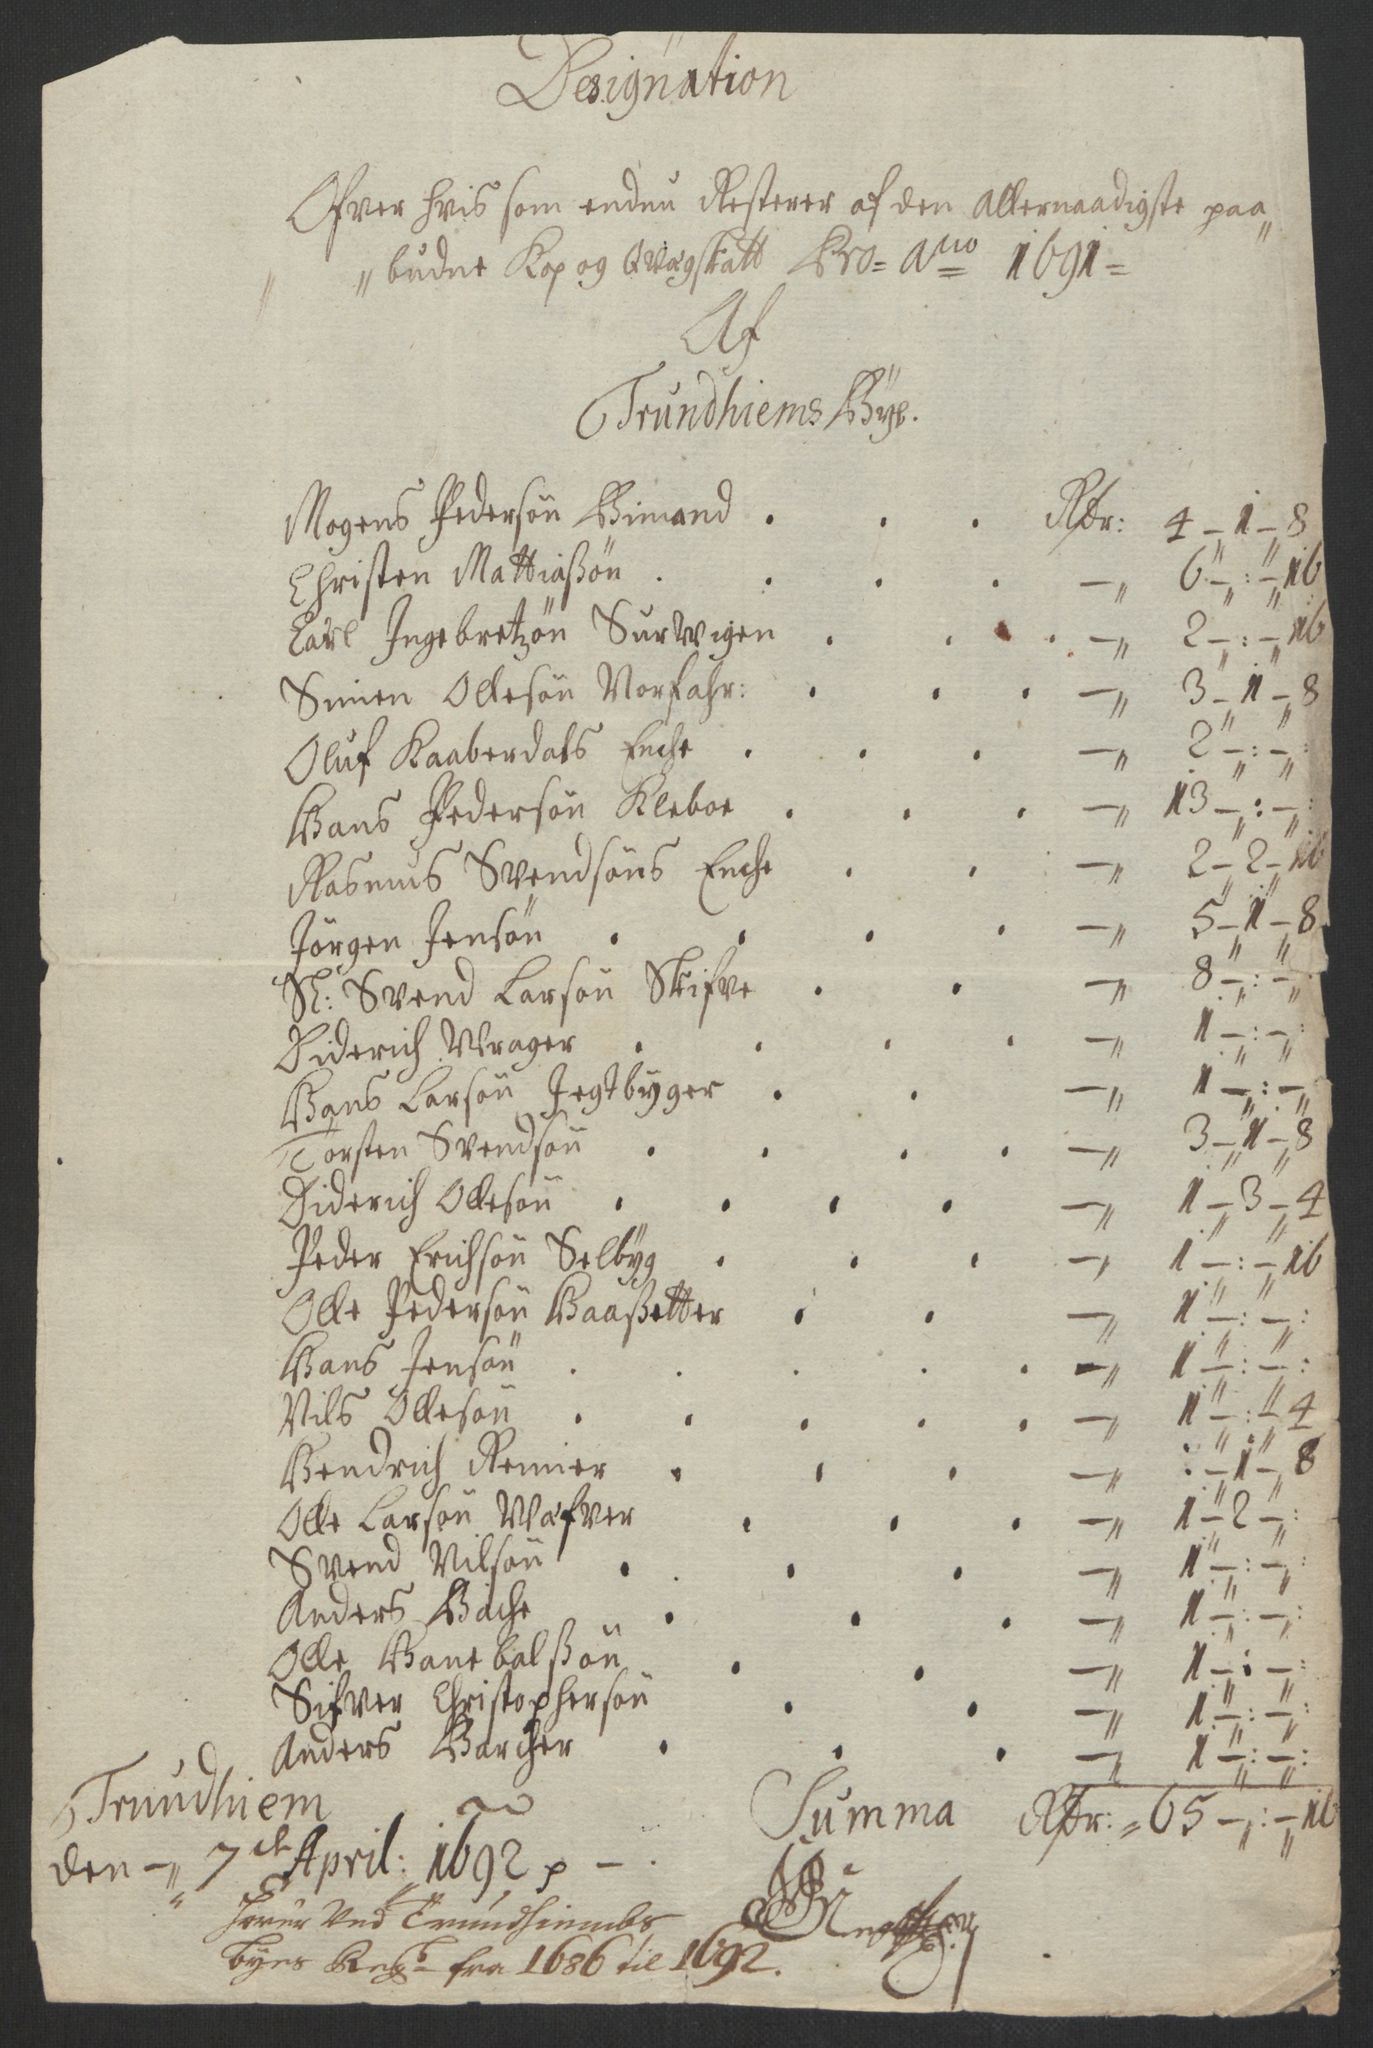 Designation
Ofver hvis som endnu Resterer af den Allernaadigste paa„
„budne Kop og Qvægskatt Pro= Ao 1691=
Af
Trundhiems Bÿe.
Mogens Pedersøn Bimand . . . Rdr: 4 - 1 - 8
Christen Mattiaßøn . . . . -„ 6 -„ : -„ 16
Carl Ingebretzøn Surwigen . . . -„ 2 -„ : -„ 16
Simen Ollesøn Norfahr: . . . -„ 3 -„ 1 -„ 8
Oluf Kaaberdals Enche . . . -„ 2 -„ : -„ :
Hans Pedersøn Kleboe . . . -„ 13 -„ : -„ :
Rasmus Svendsøns Enche . . -„ 2 - 2 - 16
Jørgen Jensøn . . . . -„ 5 -„ 1 -„ 8
Sl: Svend Larsøn Skifve . . -„ 8 -„ : -„ :
Diderich Wrager . . . . -„ 1 -„ : -„ :
Hans Larsøn Jegtbyger . . -„ 1 -„ : -„ :
Torsten Svendsøn . . . . -„ 3 -„ 1 -„ 8
Diderich Ollesøn . . . . -„ 1 -„ 3 -„ 4
Peder Erichsøn Selbÿg . . . -„ 1 -„ : -„ 16
Olle Pedersøn Haaßetter . . -„ 1 -„ : -„ :
Hans Jensøn . . . . . -„ 1 -„ : -„ :
Nils Ollesøn . . . . . -„ 1 -„ : -„ 4
Hendrich Remier . . . -„ : -„ 1 -„ 8
Olle Larsøn Wæfver . . . -„ 1 -„ 2 -„ :
Svend Nilsøn . . . -„ 1 -„ : -„ :
Anders Bache . . . -„ 1 -„ : -„ :
Olle Hanebalßøn . . -„ 1 -„ : -„ :
Sifver Christophersøn . . -„ 1 -„ : -„ :
Anders Barcher . . . -„ 1 -„ : -„ :
Summa Rdr: „ 65 -„ : -„ 16
Trundhiem
den -„ 7de April: 1692
hører ved Trundhiembs
byes Regsb fra 1686 til 1692.